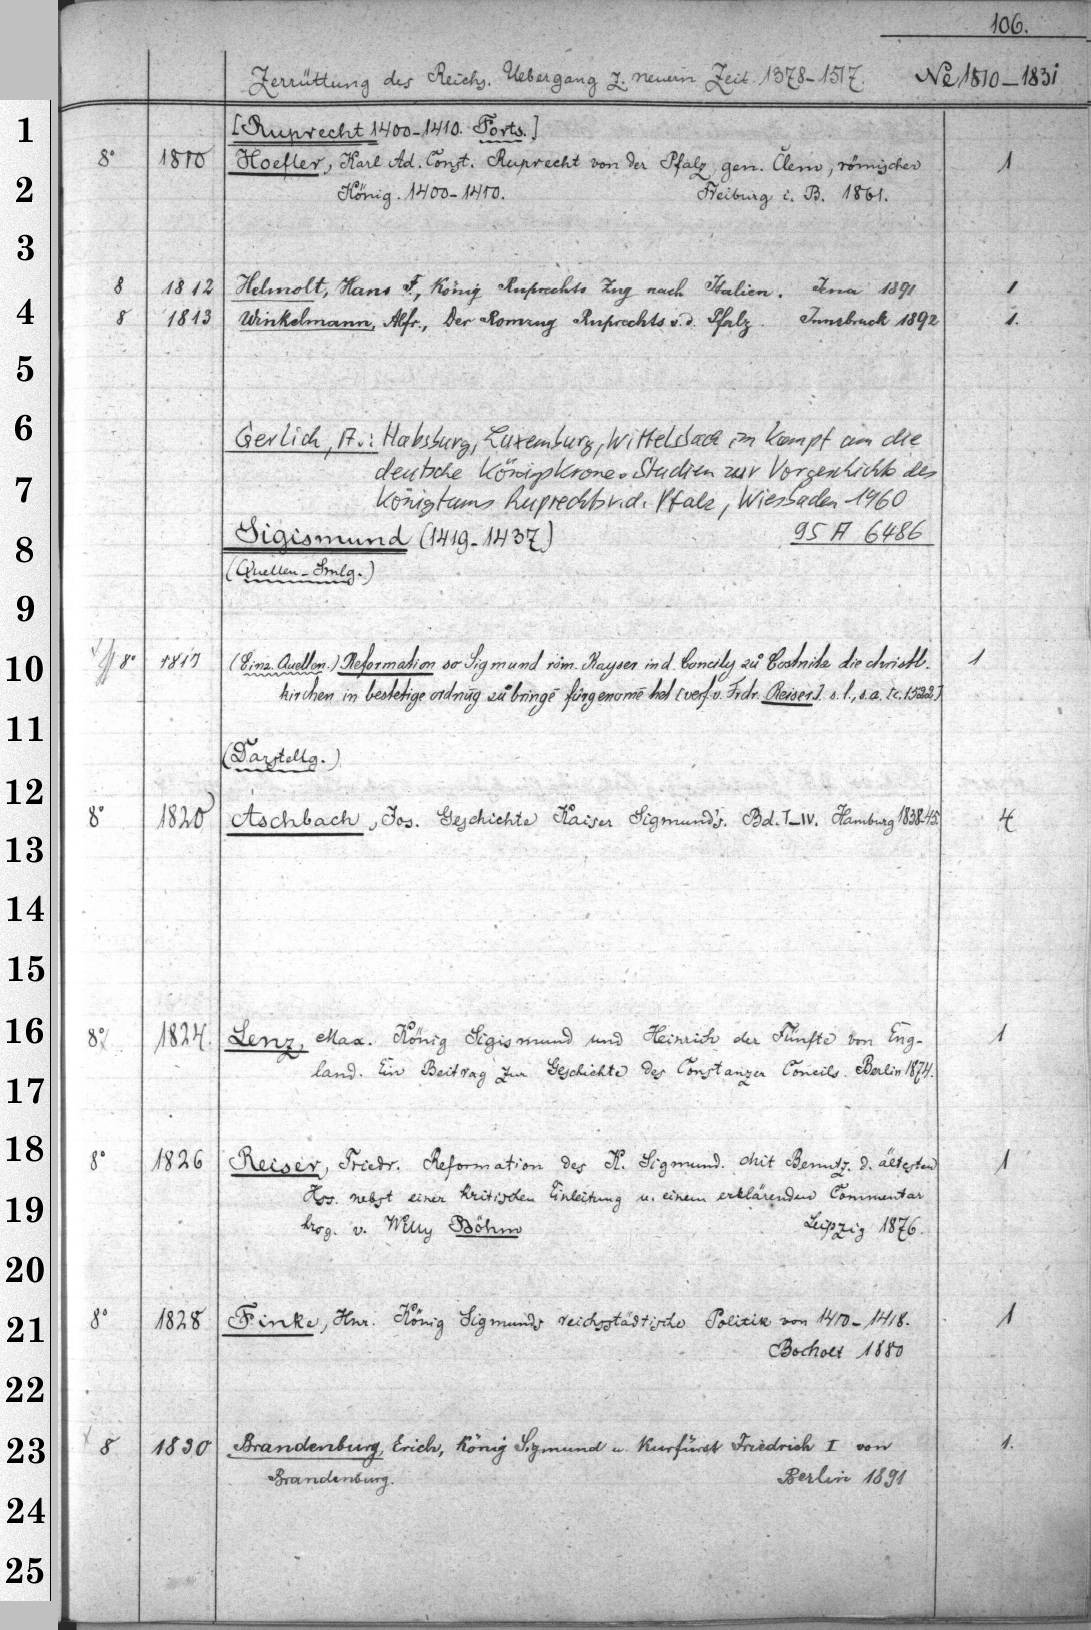 106.
Zerrüttung des Reichs. Uebergang z. neuern Zeit. 1378-1517. No 1810-1831
1
[Ruprecht 1400-1410. Forts.]
8° 1810 Hoefler, Karl Ad. Const. Ruprecht von der Pfalz, gen. Clem, römischer 1
2
König. 1400-1410. Freiburg i. B. 1861.
3
8 1812 Helmolt, Hans F., König Ruprechts Zug nach Italien. Jena 1891 1
4
8 1813 Winkelmann, Alfr., Der Romzug Ruprechts v.d. Pfalz. Innsbruck 1892 1.
5
6
Gerlich, A.: Habsburg, Luxemburg, Wittelsbach im Kampf um die
deutsche Königskrone. Studien zur Vorgeschichte des
7
Königtums Ruprechts v.d. Pfalz, Wiesbaden 1960
8
Sigismund (1419-1437) 95 A 6486
(Quellen-Smlg.)
9
10
8° 1817 (Einz. Quellen.) Reformation so Sigmund röm. Kayser in d. Concily zů Costnitz die christl. 1
kirchen in bestetige ordnūg zů bringē fürgenomē het [verf. v. Frdr. Reiser]. s. l., s. a. [c. 1522]
11
(Darstellg.)
12
8° 1820 Aschbach, Jos. Geschichte Kaiser Sigmund's. Bd. I-IV. Hamburg 1838-45. 4
13
14
15
16
8° 1824. Lenz, Max. König Sigismund und Heinrich der Fünfte von Eng- 1
land. Ein Beitrag zur Geschichte des Constanzer Concils. Berlin 1874.
17
18
8° 1826 Reiser, Friedr. Reformation des K. Sigmund. Mit Benutz. d. ältesten 1
Hss. nebst einer kritischen Einleitung u. einem erklärenden Commentar
19
hrsg. v. Willy Böhm Leipzig 1876.
20
21
8° 1828 Finke, Hnr. König Sigmunds reichsstädtische Politik von 1410-1418. 1
Bocholt 1880
22
23
8 1830 Brandenburg, Erich, König Sigmund u. Kurfürst Friedrich I von 1.
Brandenburg. Berlin 1891
24
25